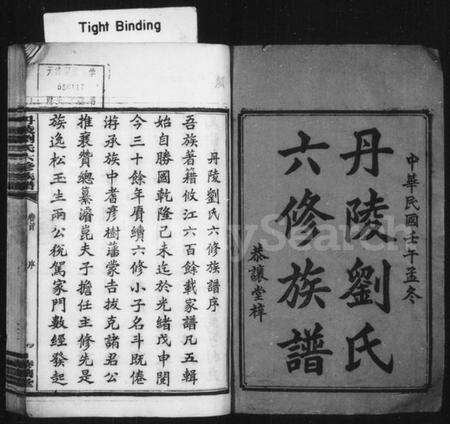 Tight Binding
中華民國壬午孟冬
丹陵劉氏
六修族譜
恭讓堂梓
丹陵劉氏六修族譜序
吾族著籍攸江六百餘載家譜凡五輯
始自勝國乾隆己未迄於光緒戊申閱
今三十餘年賡續六修小子名斗既倦
游承族中耆彥樹藩蒙吉拔克諸君公
推襄贊總纂濬崑夫子擔任主修先是
族逸松玉生兩公稅駕家門數經發起
丹陵劉氏六修族譜
卷首
序
MySearch